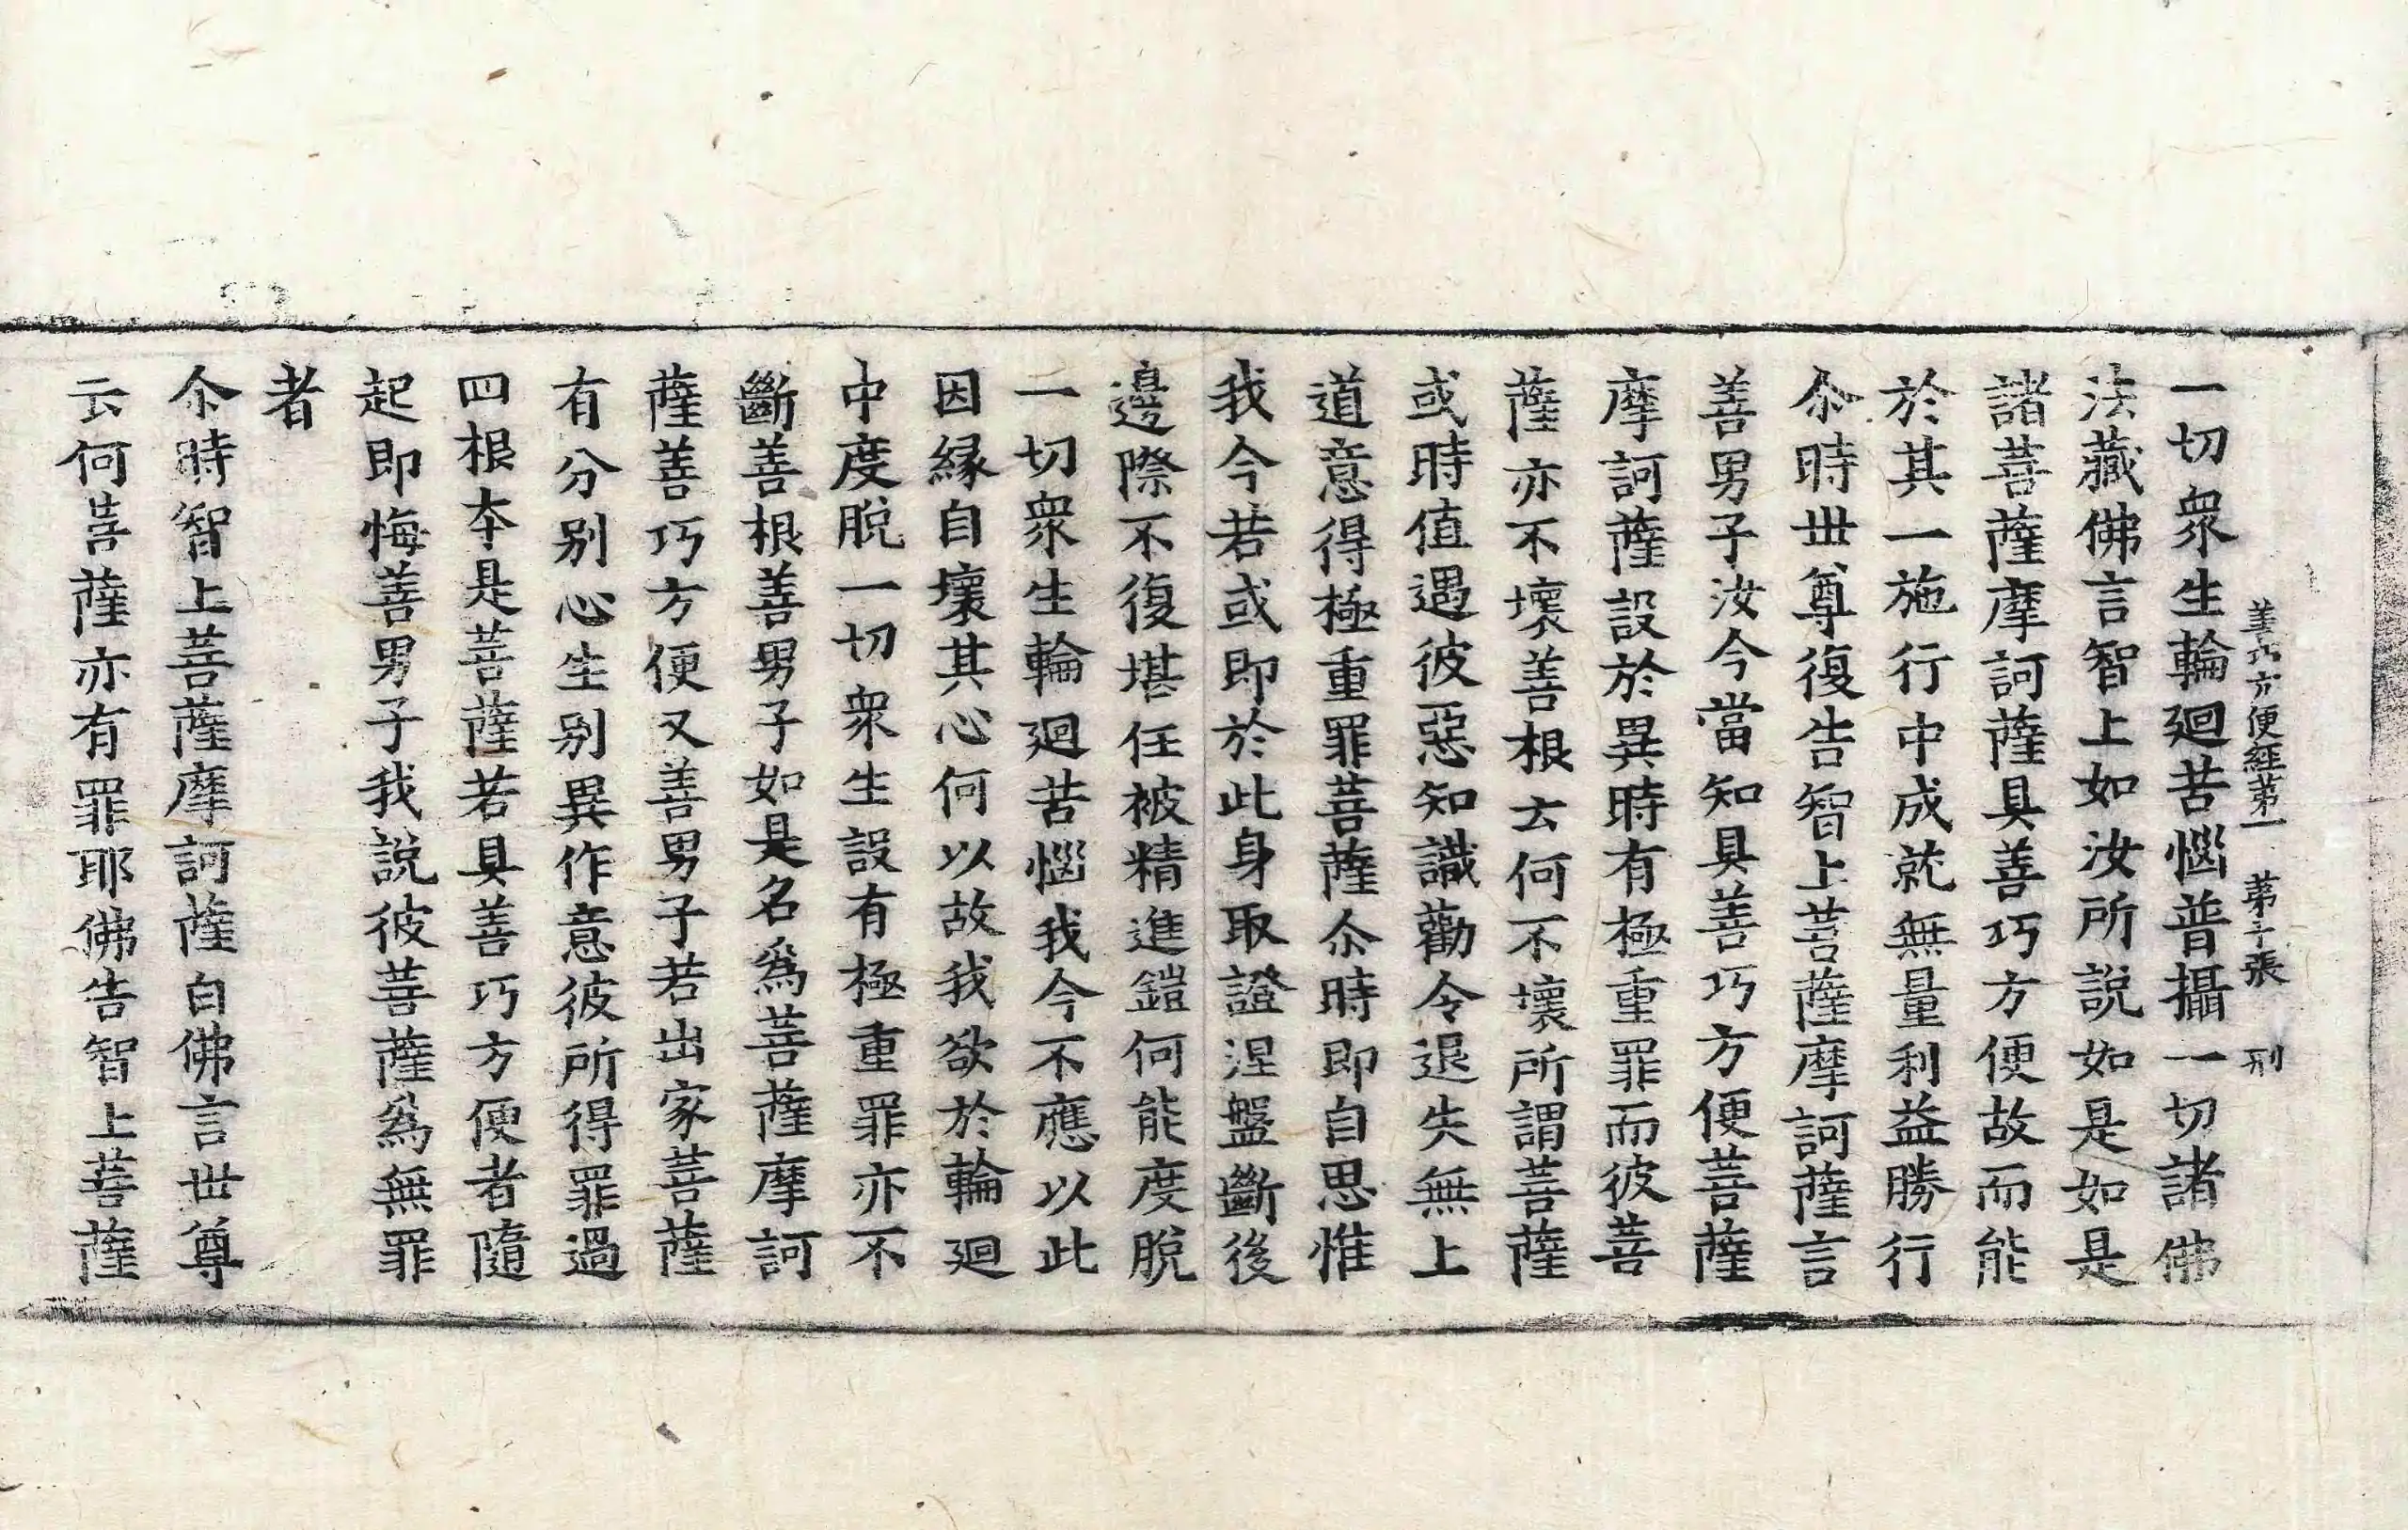 善巧方便經第一 第十張 刑
一切衆生輪廻苦惱普攝一切諸佛
法藏佛言智上如汝所說如是如是
諸菩薩摩訶薩具善巧方便故而能
於其一施行中成就無量利益勝行
尒時世尊復告智上菩薩摩訶薩言
善男子汝今當知具善巧方便菩薩
摩訶薩設於異時有極重罪而彼菩
薩亦不壞善根云何不壞所謂菩薩
或時值遇彼惡知識勸令退失無上
道意得極重罪菩薩尒時即自思惟
我今若或即於此身取證涅盤斷後
邊際不復堪任被精進鎧何能度脫
一切衆生輪廻苦惱我今不應以此
因緣自壞其心何以故我欲於輪廻
中度脫一切衆生設有極重罪亦不
斷善根善男子如是名爲菩薩摩訶
薩善巧方便又善男子若出家菩薩
有分别心生别異作意彼所得罪過
四根本是菩薩若具善巧方便者隨
起即悔善男子我說彼菩薩爲無罪
者
尒時智上菩薩摩訶薩白佛言世尊
云何菩薩亦有罪耶佛告智上菩薩